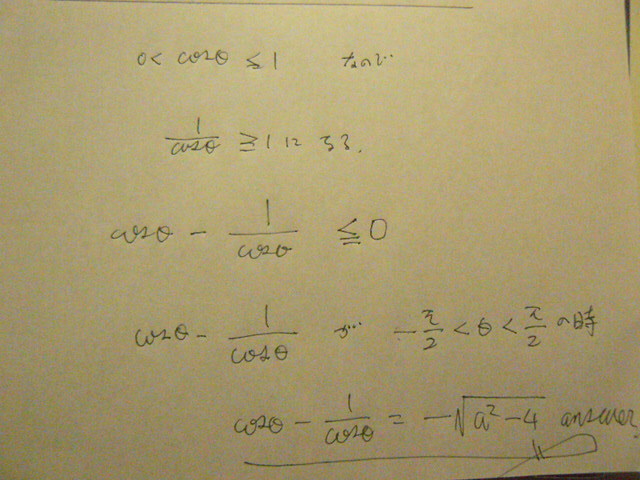 0 < cosθ ≦ 1 なので
1/cosθ ≧ 1 になる.
cosθ - 1/cosθ ≦ 0
cosθ - 1/cosθ が -π/2 < θ < π/2 の時
cosθ - 1/cosθ = -√(a²-4) answer